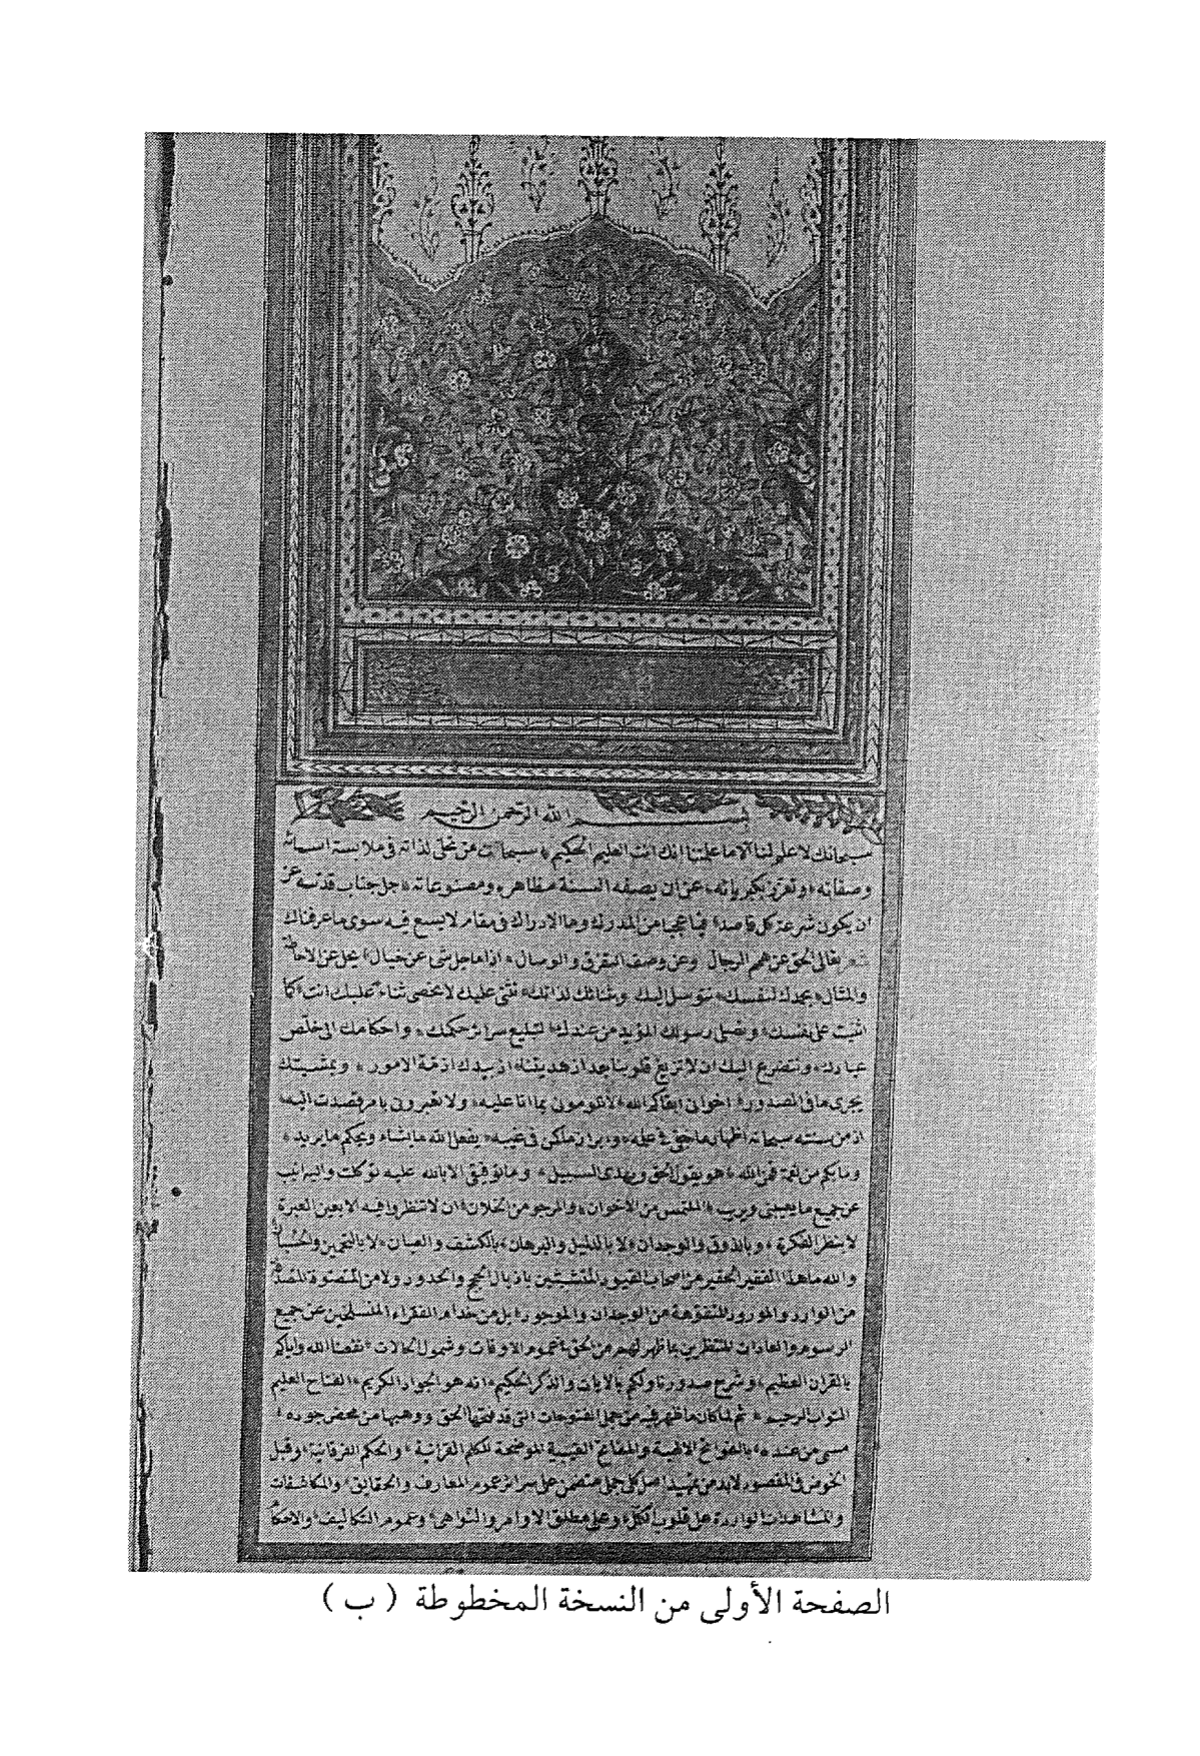 بسم الله الرحمن الرحيم
سبحانك لا علم لنا الا ما علمتنا انك انت العليم الحكيم سبحانك من تجلى لذاته فى ملابسة اسمائه
وصفاته وتعزز بكبريائه عن ان يصفه السنة مظاهره ومصنوعاته جل جناب قدسه عن
ان يكون شرعة كل قاصد فيا عجبا من المدرك وما الادراك فى مقام لا يسع فيه سوى ما عرفناك
شعر تعالى الحق عن همم الرجال وعن وصف التفرق والوصال اذا ما جل شئ عن خيال يجل عن الاحاطة
والمثال بحمدك لنفسك نتوسل اليك وبثنائك لذاتك نثنى عليك لا نحصى ثناء عليك انت كما
اثنيت على نفسك ونصلى رسولك المؤيد من عندك لتبليغ سرائر حكمك واحكامك الى خلص
عبادك ونتضرع اليك ان لا تزيغ قلوبنا بعد اذ هديتنا اذ بيدك ازمة الامور وبمشيتك
يجرى ما فى الصدور اخوانى ابقاكم الله لا تلومونى بما انا عليه ولا تعيرون بامر قصدت اليه
اذ من سنته سبحانه اظهار ما خفى فى علمه وابراز ما كمن فى غيبه يفعل الله ما يشاء ويحكم ما يريد
وما بكم من نعمة فمن الله هو يقول الحق ويهدى السبيل وما توفيقى الا بالله عليه توكلت واليه انيب
عن جميع ما يعيبنى ويريب الملتمس من الاخوان والمرجو من الخلان ان لا تنظروا فيه الا بعين العبرة
لا بنظر الفكرة وبالذوق والوجدان لا بالدليل والبرهان بالكشف والعيان لا بالتخمين والحسبان
والله ما هذا الفقير الحقير من اصحاب القيود المتشبثين باذيال الحجج والحدود ولا من المتصوفة
من الوارد والمورود المتفوهة عن الوجدان والموجود بل من خدام الفقراء المنسلخين عن جميع
الرسوم والعادات المنتظرين بما ظهر لهم من الحق فى عموم الاوقات وشمول الحالات نفعنا الله واياكم
بالقران العظيم وشرح صدورنا وايكم بالايات والذكر الحكيم انه هو الجواد الكريم الفتاح العليم
التواب الرحيم ثم لما كان ما ظهر فيه من جمل الفتوحات التى قد فتحها الحق ووهبها من محض جوده
سمى من عنده بالفواتح الالهية والمفاتح الغيبية الموضحة للكلم القرآنية والحكم الفرقانية وقبل
الخوض فى المقصود لابد من تمهيد اصل كلى جملى متضمن على سرائر عموم المعارف والحقايق والمكاشفات
والمشاهدات الواردة على قلوب الكمل وعلى مطلق الاوامر والنواهى وعموم التكاليف والاحكام
الصفحة الأولى من النسخة المخطوطة ( ب )